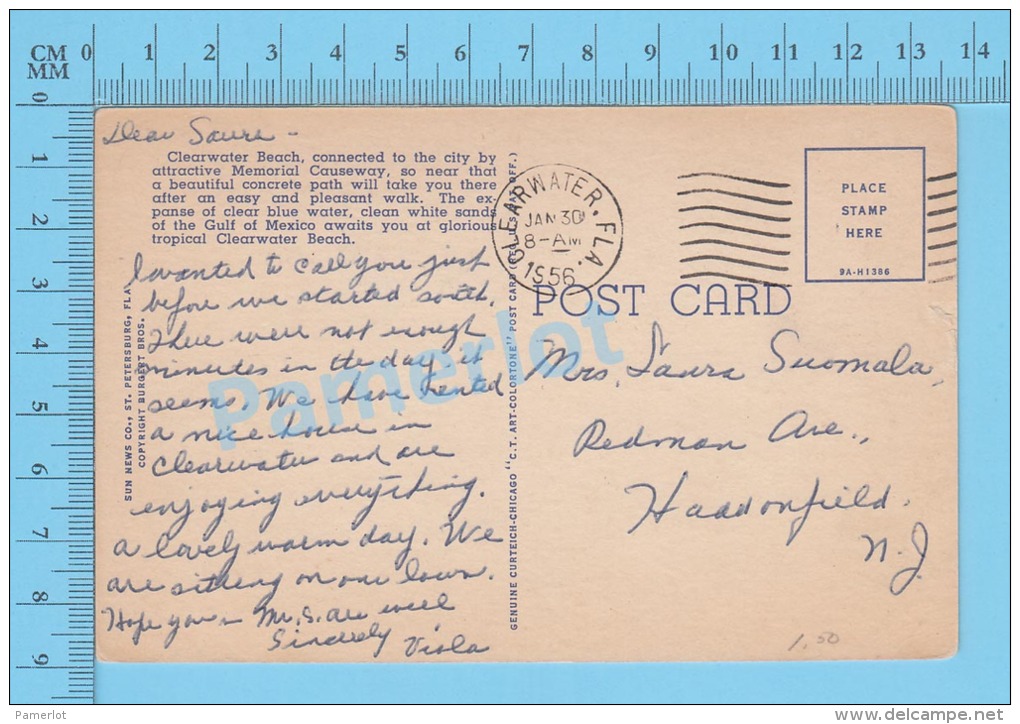 CM 0 1 2 3 4 5 6 7 8 9 10 11 12 13 14
MM
0 1 2 3 4 5 6 7 8 9
Dear Laura -
Clearwater Beach, connected to the city by
attractive Memorial Causeway, so near that
a beautiful concrete path will take you there
after an easy and pleasant walk. The ex-
panse of clear blue water, clean white sands
of the Gulf of Mexico awaits you at glorious
tropical Clearwater Beach.
I wanted to call you just
before we started south.
There were not enough
minutes in the day it
seems. We have rented
a nice house in
Clearwater and are
enjoying everything.
a lovely warm day. We
are sitting on our lawn.
Hope you & Mr. S. are well
Sincerely Viola
SUN NEWS CO., ST. PETERSBURG, FLA.
COPYRIGHT BURGERT BROS.
GENUINE CURTEICH-CHICAGO "C.T. ART-COLORTONE" POST CARD (REG. U.S. PAT. OFF.)
CLEARWATER, FLA.
JAN 30
8-AM
1956
PLACE
STAMP
HERE
9A-H1386
POST CARD
Mrs. Laura Suomala,
Redman Ave.,
Haddonfield.
N.J.
1.50
Pamerlot
Pamerlot
www.delcampe.net